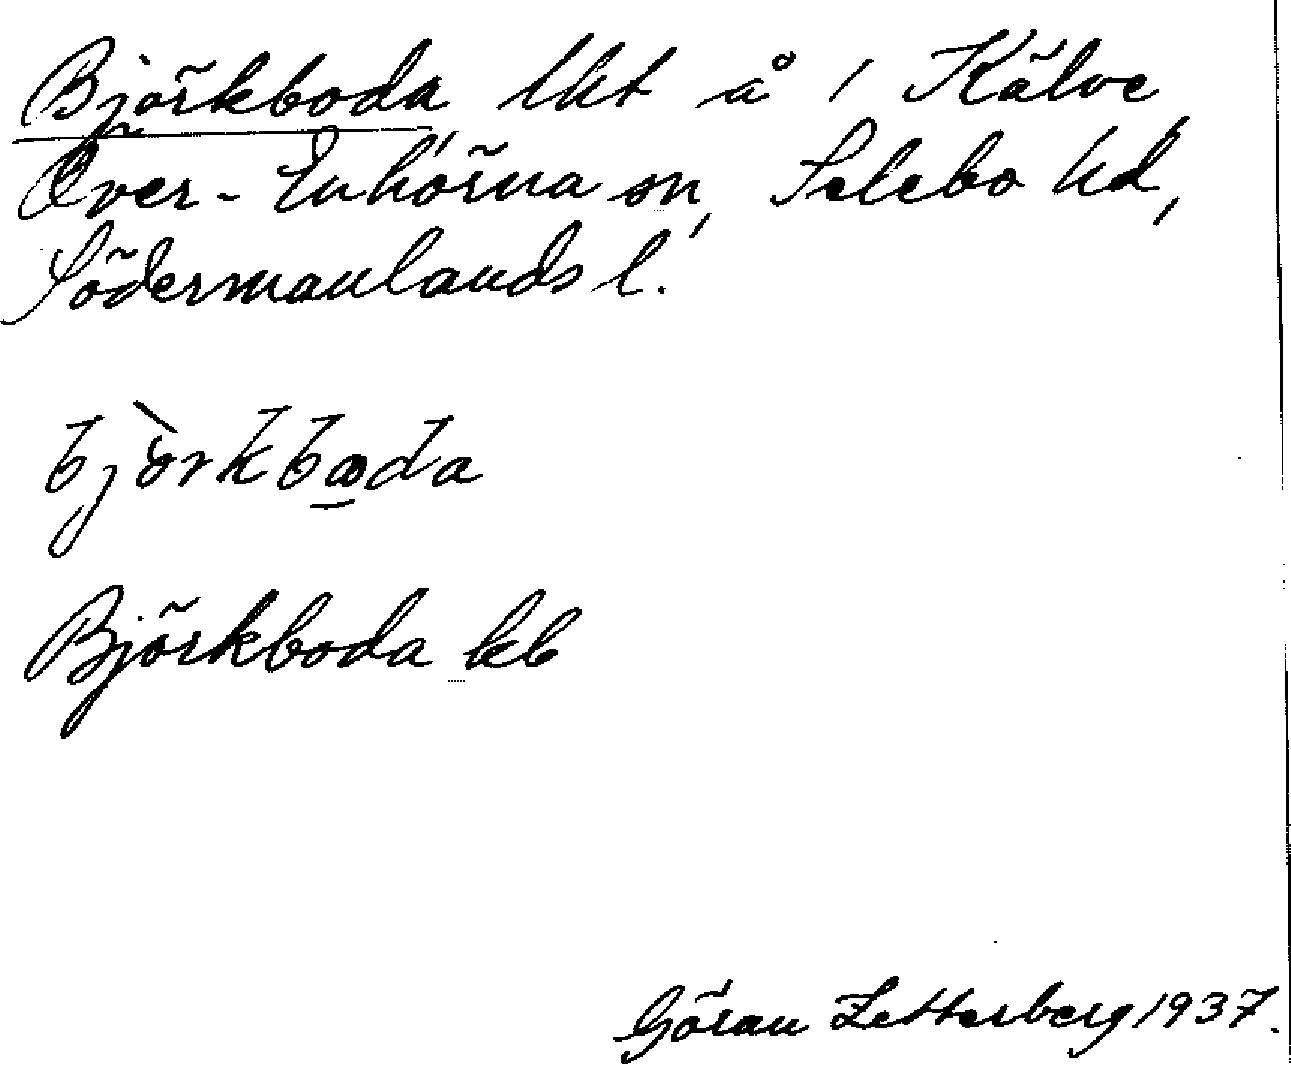 Björkboda lht å 1 Kälve
Över-Enhörna sn, Selebo hd,
Södermanlands l.
bjòrkbωda
Björkboda kb
Göran Zetterberg 1937.